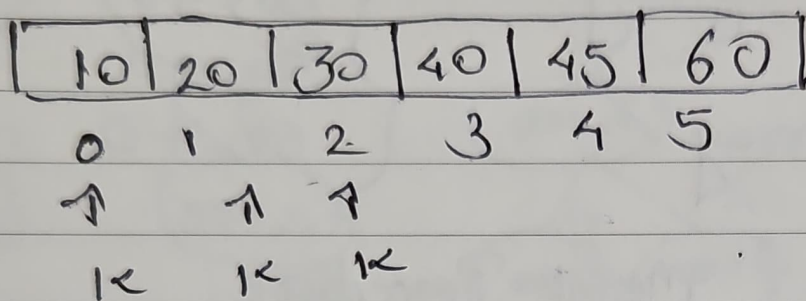 10 20 30 40 45 60
0 1 2 3 4 5
↑ ↑ ↑
K K K